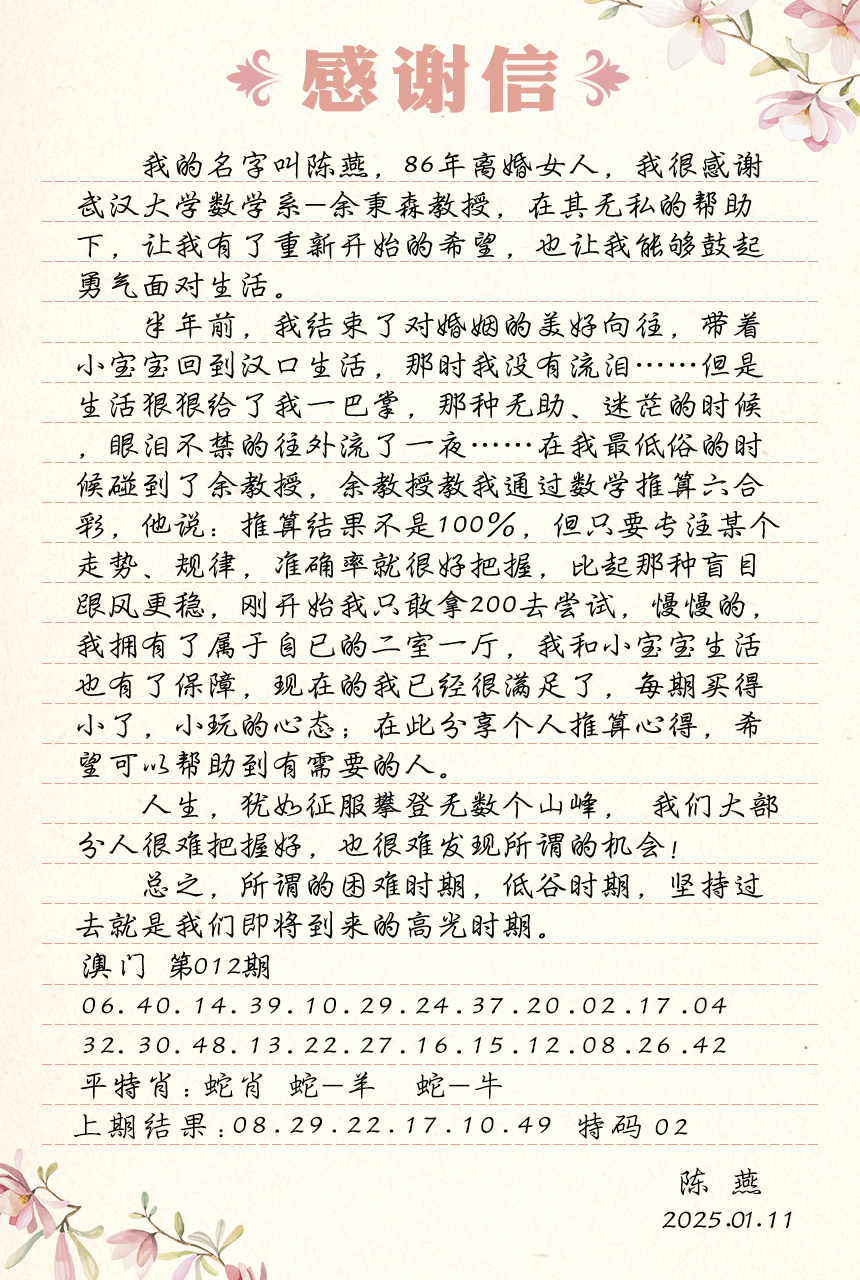 感谢信
我的名字叫陈燕，86年离婚女人，我很感谢
武汉大学数学系—余秉森教授，在其无私的帮助
下，让我有了重新开始的希望，也让我能够鼓起
勇气面对生活。
半年前，我结束了对婚姻的美好向往，带着
小宝宝回到汉口生活，那时我没有流泪……但是
生活狠狠给了我一巴掌，那种无助、迷茫的时候
，眼泪不禁的往外流了一夜……在我最低俗的时
候碰到了余教授，余教授教我通过数学推算六合
彩，他说：推算结果不是100%，但只要专注某个
走势、规律，准确率就很好把握，比起那种盲目
跟风更稳，刚开始我只敢拿200去尝试，慢慢的，
我拥有了属于自己的二室一厅，我和小宝宝生活
也有了保障，现在的我已经很满足了，每期买得
小了，小玩的心态；在此分享个人推算心得，希
望可以帮助到有需要的人。
人生，犹如征服攀登无数个山峰， 我们大部
分人很难把握好，也很难发现所谓的机会！
总之，所谓的困难时期，低谷时期，坚持过
去就是我们即将到来的高光时期。
澳门 第012期
06.40.14.39.10.29.24.37.20.02.17.04
32.30.48.13.22.27.16.15.12.08.26.42
平特肖：蛇肖 蛇—羊 蛇—牛
上期结果：08.29.22.17.10.49 特码 02
陈 燕
2025.01.11